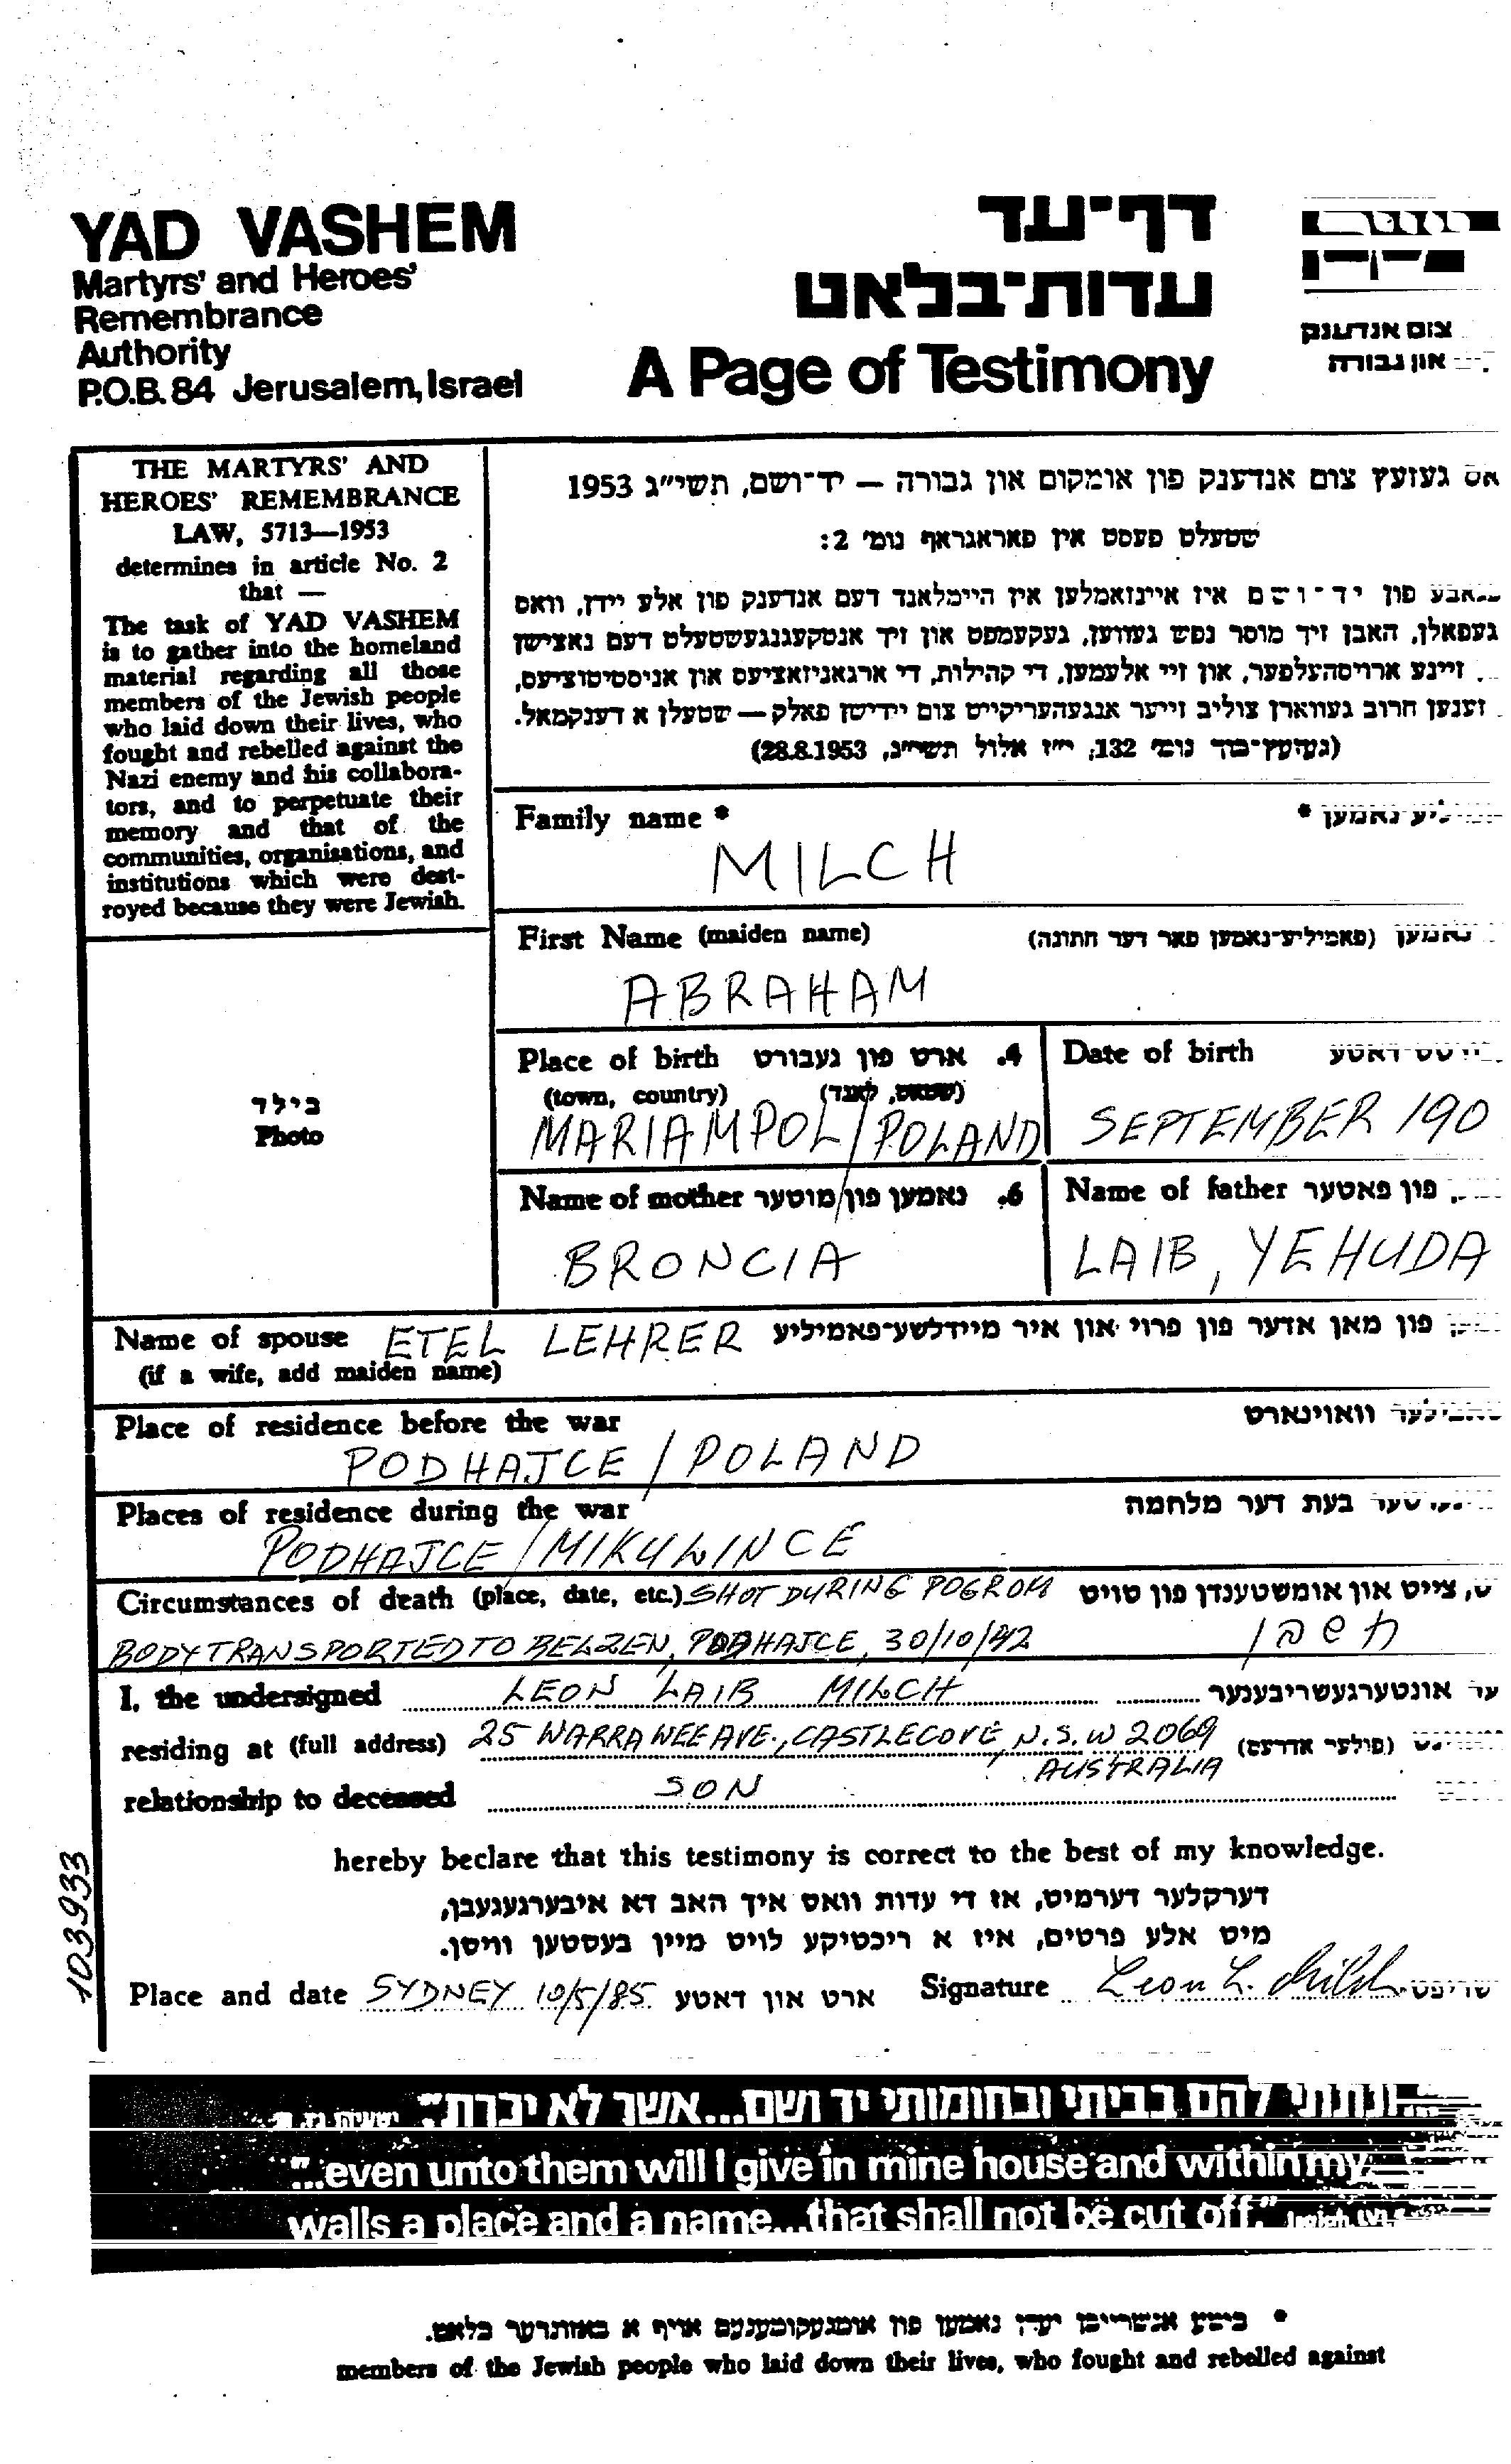 YAD VASHEM
Martyrs' and Heroes'
Remembrance
Authority
P.O.B. 84 Jerusalem, Israel
דף־עד
עדות־בלאט
A Page of Testimony
צום אנדענק
און גבורה
THE MARTYRS' AND
HEROES' REMEMBRANCE
LAW, 5713—1953
determines in article No. 2
that —
The task of YAD VASHEM
is to gather into the homeland
material regarding all those
members of the Jewish people
who laid down their lives, who
fought and rebelled against the
Nazi enemy and his collabora-
tors, and to perpetuate their
memory and that of the
communities, organisations, and
institutions which were dest-
royed because they were Jewish.
אס געזעץ צום אנדענק פון אומקום און גבורה — יד־ושם, תשי״ג 1953
שטעלט פעסט אין פאראגראף נומ׳ 2:
פון יד־ושם איז איינזאמלען אין היימלאנד דעם אנדענק פון אלע יידן, וואס
געפאלן, האבן זיך מוסר נפש געווען, געקעמפט און זיך אנטקעגנגעשטעלט דעם נאצישן
זיינע ארויסהעלפער, און זיי אלעמען, די קהילות, די ארגאניזאציעס און אניסטיטוציעס,
זענען חרוב געווארן צוליב זייער אנגעהעריקייט צום יידישן פאלק — שטעלן א דענקמאל.
(געזעץ־בוך נומ׳ 132, י״ז אלול תשי״ג, 28.8.1953)
Family name *
* נאמען
MILCH
First Name (maiden name) (פאמיליע־נאמען פאר דער חתונה) נאמען
ABRAHAM
Place of birth ארט פון געבורט .4
(town, country) (שטאט, לאנד)
MARIAMPOL / POLAND
Date of birth
SEPTEMBER 190
Name of mother נאמען פון מוטער .6
BRONCIA
Name of father פון פאטער
LAIB, YEHUDA
Name of spouse ETEL LEHRER פון מאן אדער פון פרוי און איר מיידלשע־פאמיליע
(if a wife, add maiden name)
Place of residence before the war וואוינארט
PODHAJCE / POLAND
Places of residence during the war בעת דער מלחמה
PODHAJCE / MIKULINCE
Circumstances of death (place, date, etc.) SHOT DURING POGROM ט, צייט און אומשטענדן פון טויט
BODY TRANSPORTED TO BELZEN, PODHAJCE, 30/10/42
I, the undersigned LEON LAIB MILCH ער אונטערגעשריבענער
residing at (full address) 25 WARRAWEE AVE., CASTLECOVE, N.S.W 2069 (פולער אדרעס)
AUSTRALIA
relationship to deceased SON
hereby beclare that this testimony is correct to the best of my knowledge.
דערקלער דערמיט, אז די עדות וואס איך האב דא איבערגעגעבן,
מיט אלע פרטים, איז א ריכטיקע לויט מיין בעסטען וויסן.
Place and date SYDNEY 10/5/85 ארט און דאטע Signature Leon L. Milch
103933
בילד
Photo
ונתתי להם בביתי ובחומותי יד ושם...אשר לא יכרת"
"...even unto them will I give in mine house and within my
walls a place and a name...that shall not be cut off."
* ביטע אנשרייבן יעדן נאמען פון אומגעקומענעם אויף א באזונדער בלאט.
members of the Jewish people who laid down their lives, who fought and rebelled against